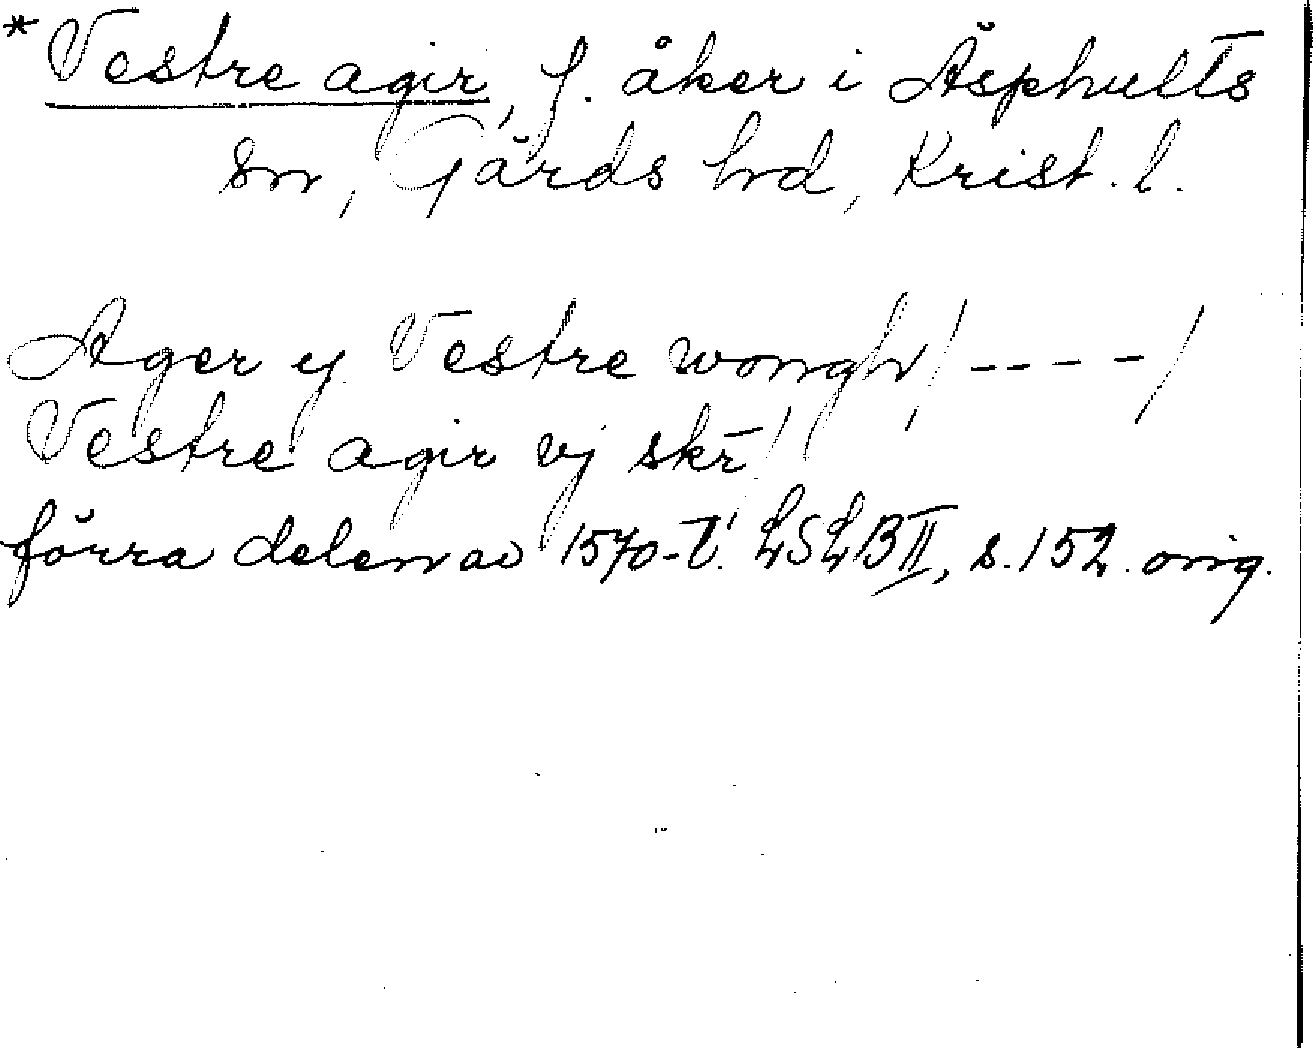 *Vestre agir, f. åker i Äsphults
sn, Gärds hrd, Krist. l.
Ager y Vestre wongh, /----/
Vestre agir vj skr̄
förra delen av 1570-t. LSLB II, s. 152. orig.